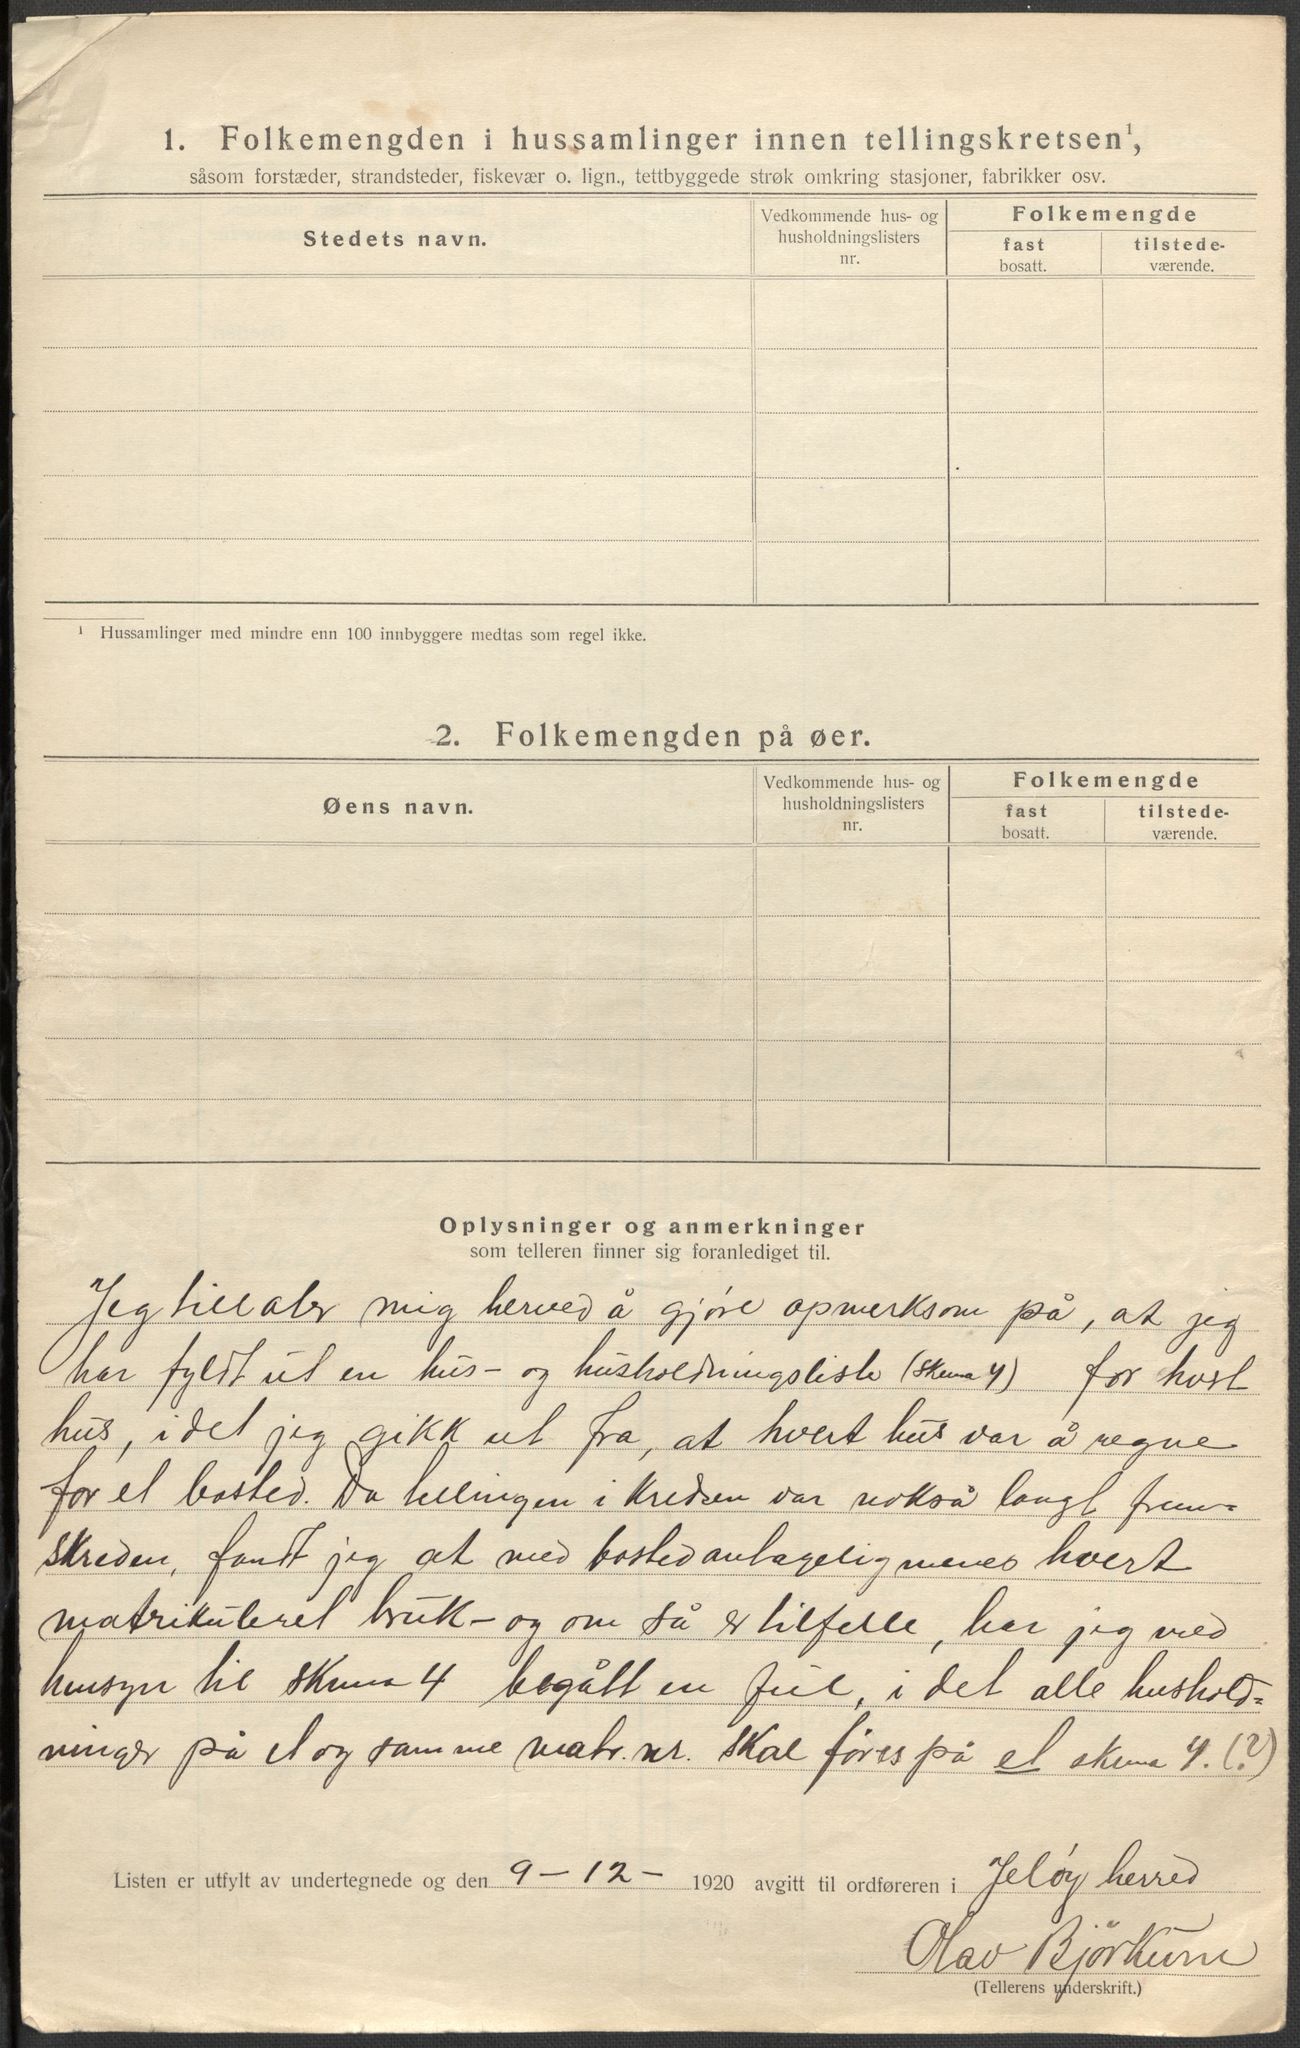 1. Folkemengden i hussamlinger innen tellingskretsen¹,
såsom forstæder, strandsteder, fiskevær o. lign., tettbyggede strøk omkring stasjoner, fabrikker osv.
Stedets navn.
Vedkommende hus- og
husholdningslisters
nr.
Folkemengde
fast
bosatt.
tilstede-
værende.
¹ Hussamlinger med mindre enn 100 innbyggere medtas som regel ikke.
2. Folkemengden på øer.
Øens navn.
Vedkommende hus- og
husholdningslisters
nr.
Folkemengde
fast
bosatt.
tilstede-
værende.
Oplysninger og anmerkninger
som telleren finner sig foranlediget til.
Jeg tillater mig herved å gjøre opmerksom på, at jeg
har fyldt ut en hus- og husholdningsliste (skema 4) for hvert
hus, i det jeg gikk ut fra, at hvert hus var å regne
for et bosted. Da tellingen i kredsen var nokså langt frem-
skreden, fandt jeg at med bosted antagelig menes hvert
matrikuleret bruk - og om så er tilfelle, har jeg med
hensyn til skema 4 begått en feil, i det alle hushold-
ninger på et og samme matr. nr. skal føres på et skema 4. (?)
Listen er utfylt av undertegnede og den 9-12- 1920 avgitt til ordføreren i Jeløy herred
Olav Bjørkum
(Tellerens underskrift.)